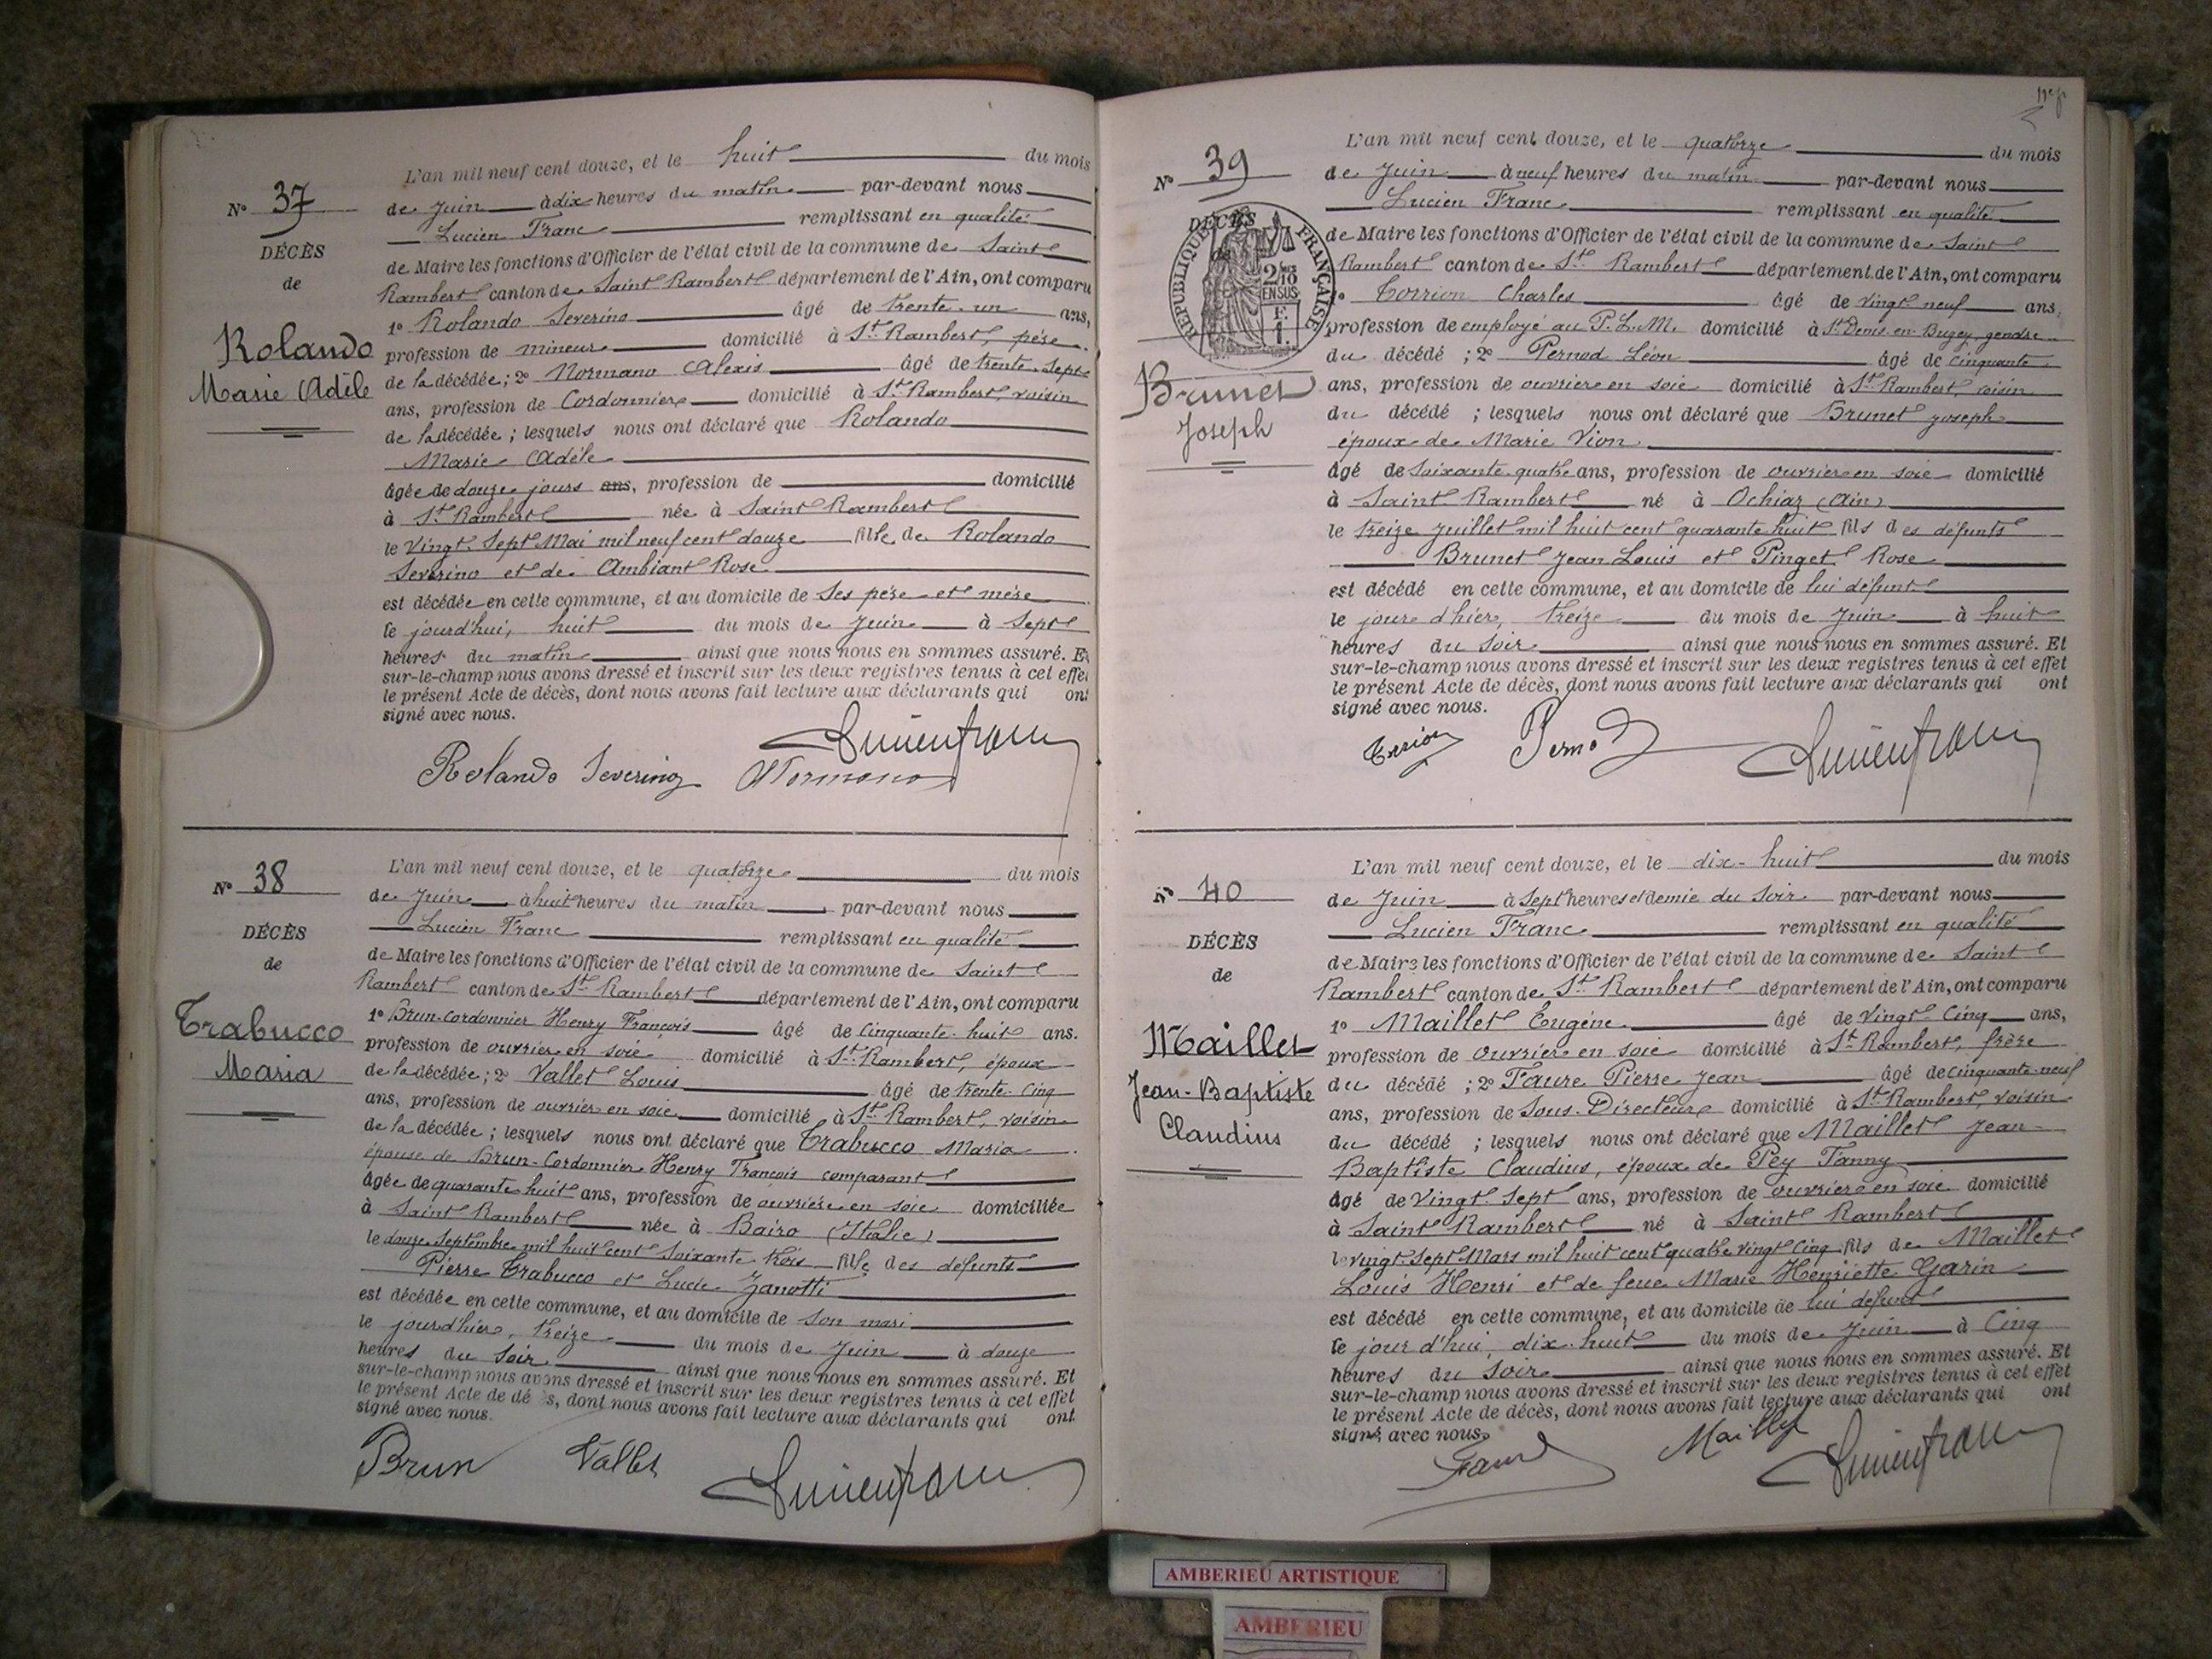 L'an mil neuf cent douze, et le huit du mois
N° 37
de Juin à dix heures du matin par-devant nous
Lucien Franc remplissant en qualité
DÉCÈS
de Maire les fonctions d'Officier de l'état civil de la commune de Saint
de
Rambert canton de Saint Rambert département de l'Ain, ont comparu
1° Rolando Severino âgé de trente-un ans,
Rolando
profession de mineur domicilié à St Rambert, père
Marie Adèle
de la décédée; 2° Normano Alexis âgé de trente-sept
ans, profession de Cordonnier domicilié à St Rambert, voisin
de la décédée; lesquels nous ont déclaré que Rolando
Marie Adèle
âgée de douze jours ans, profession de domicilié
à St Rambert née à Saint Rambert
le Vingt-Sept Mai mil neuf cent douze fille de Rolando
Severino et de Ambiant Rose
est décédée en cette commune, et au domicile de Ses père et mère
le jourd'hui, huit du mois de Juin à Sept
heures du matin ainsi que nous nous en sommes assuré. Et
sur-le-champ nous avons dressé et inscrit sur les deux registres tenus à cet effet
le présent Acte de décès, dont nous avons fait lecture aux déclarants qui ont
signé avec nous.
Lucien Franc
Rolando Severino Normano
L'an mil neuf cent douze, et le quatorze du mois
N° 38
de Juin à huit heures du matin par-devant nous
Lucien Franc remplissant en qualité
DÉCÈS
de Maire les fonctions d'Officier de l'état civil de la commune de Saint
de
Rambert canton de St Rambert département de l'Ain, ont comparu
1° Brun-Cordonnier Henry François âgé de Cinquante-huit ans.
Trabucco
profession de ouvrier en soie domicilié à St Rambert, époux
Maria
de la décédée; 2° Vallet Louis âgé de trente-Cinq
ans, profession de ouvrier en soie domicilié à St Rambert, voisin
de la décédée; lesquels nous ont déclaré que Trabucco Maria
épouse de Brun-Cordonnier Henry François comparant
âgée de quarante huit ans, profession de ouvrière en soie domiciliée
à Saint Rambert née à Bairo (Italie)
le douze Septembre mil huit cent Soixante trois fille des défunts
Pierre Trabucco et Lucie Zanotti
est décédée en cette commune, et au domicile de Son mari
le jour d'hier, treize du mois de Juin à douze
heures du Soir ainsi que nous nous en sommes assuré. Et
sur-le-champ nous avons dressé et inscrit sur les deux registres tenus à cet effet
le présent Acte de dé s, dont nous avons fait lecture aux déclarants qui ont
signé avec nous.
Brun Vallet Lucien Franc
L'an mil neuf cent douze, et le quatorze du mois
N° 39
de Juin à neuf heures du matin par-devant nous
Lucien Franc remplissant en qualité
DÉCÈS
de
RÉPUBLIQUE FRANÇAISE
2/10 EN SUS
F. 1.
de Maire les fonctions d'Officier de l'état civil de la commune de Saint
Rambert canton de St Rambert département de l'Ain, ont comparu
1° Torrion Charles âgé de vingt-neuf ans,
profession de employé au P.L.M. domicilié à St Denis-en-Bugey, gendre
du décédé; 2° Pernod Léon âgé de cinquante
Brunet
ans, profession de ouvrier en soie domicilié à St Rambert, voisin
Joseph
du décédé; lesquels nous ont déclaré que Brunet Joseph
époux de Marie Vion
âgé de Soixante-quatre ans, profession de ouvrier en soie domicilié
à Saint-Rambert né à Ochiaz (Ain)
le treize Juillet mil huit cent quarante huit fils des défunts
Brunet Jean Louis et Pinget Rose
est décédé en cette commune, et au domicile de lui défunt
le jour d'hier, treize du mois de Juin à huit
heures du Soir ainsi que nous nous en sommes assuré. Et
sur-le-champ nous avons dressé et inscrit sur les deux registres tenus à cet effet
le présent Acte de décès, dont nous avons fait lecture aux déclarants qui ont
signé avec nous.
Pernod Lucien Franc
L'an mil neuf cent douze, et le dix-huit du mois
N° 40
de Juin à Sept heures et demie du Soir par-devant nous
Lucien Franc remplissant en qualité
DÉCÈS
de Maire les fonctions d'Officier de l'état civil de la commune de Saint
de
Rambert canton de St Rambert département de l'Ain, ont comparu
1° Maillet Eugène âgé de Vingt-Cinq ans,
Maillet
profession de Ouvrier en soie domicilié à St Rambert, frère
Jean-Baptiste
du décédé; 2° Faure Pierre Jean âgé de cinquante-neuf
ans, profession de Sous-Directeur domicilié à St Rambert, voisin
Claudius
du décédé; lesquels nous ont déclaré que Maillet Jean-
Baptiste Claudius, époux de Pey Fanny
âgé de Vingt-Sept ans, profession de ouvrier en soie domicilié
à Saint Rambert né à Saint Rambert
le vingt-Sept Mars mil huit cent quatre vingt Cinq fils de Maillet
Louis Henri et de feue Marie Henriette Garin
est décédé en cette commune, et au domicile de lui défunt
le jour d'hui, dix-huit du mois de Juin à Cinq
heures du Soir ainsi que nous nous en sommes assuré. Et
sur-le-champ nous avons dressé et inscrit sur les deux registres tenus à cet effet
le présent Acte de décès, dont nous avons fait lecture aux déclarants qui ont
signé avec nous.
Faure Maillet Lucien Franc
AMBERIEU ARTISTIQUE
AMBERIEU